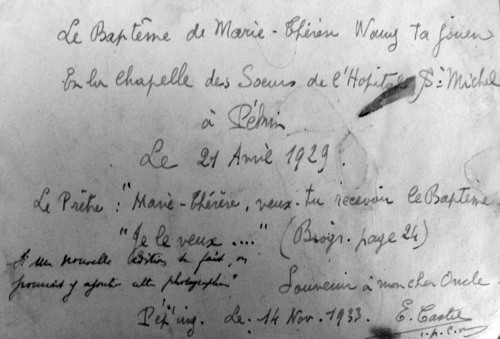 Le Baptême de Marie-Thérèse Wang ta jouen
En la chapelle des Soeurs de l'Hopital St: Michel
à Pékin
Le 21 Avril 1929.
Le Prêtre: "Marie-Thérère, veux-tu recevoir le Baptême
"Je le veux ...." (Biogr. page 24)
Si une nouvelle édition se fait, on
pourrait y ajouter cette photographie"
Souvenir à mon cher Oncle
Pép'ing. le 14 Nov. 1933. E. Castel
i.p.c.m